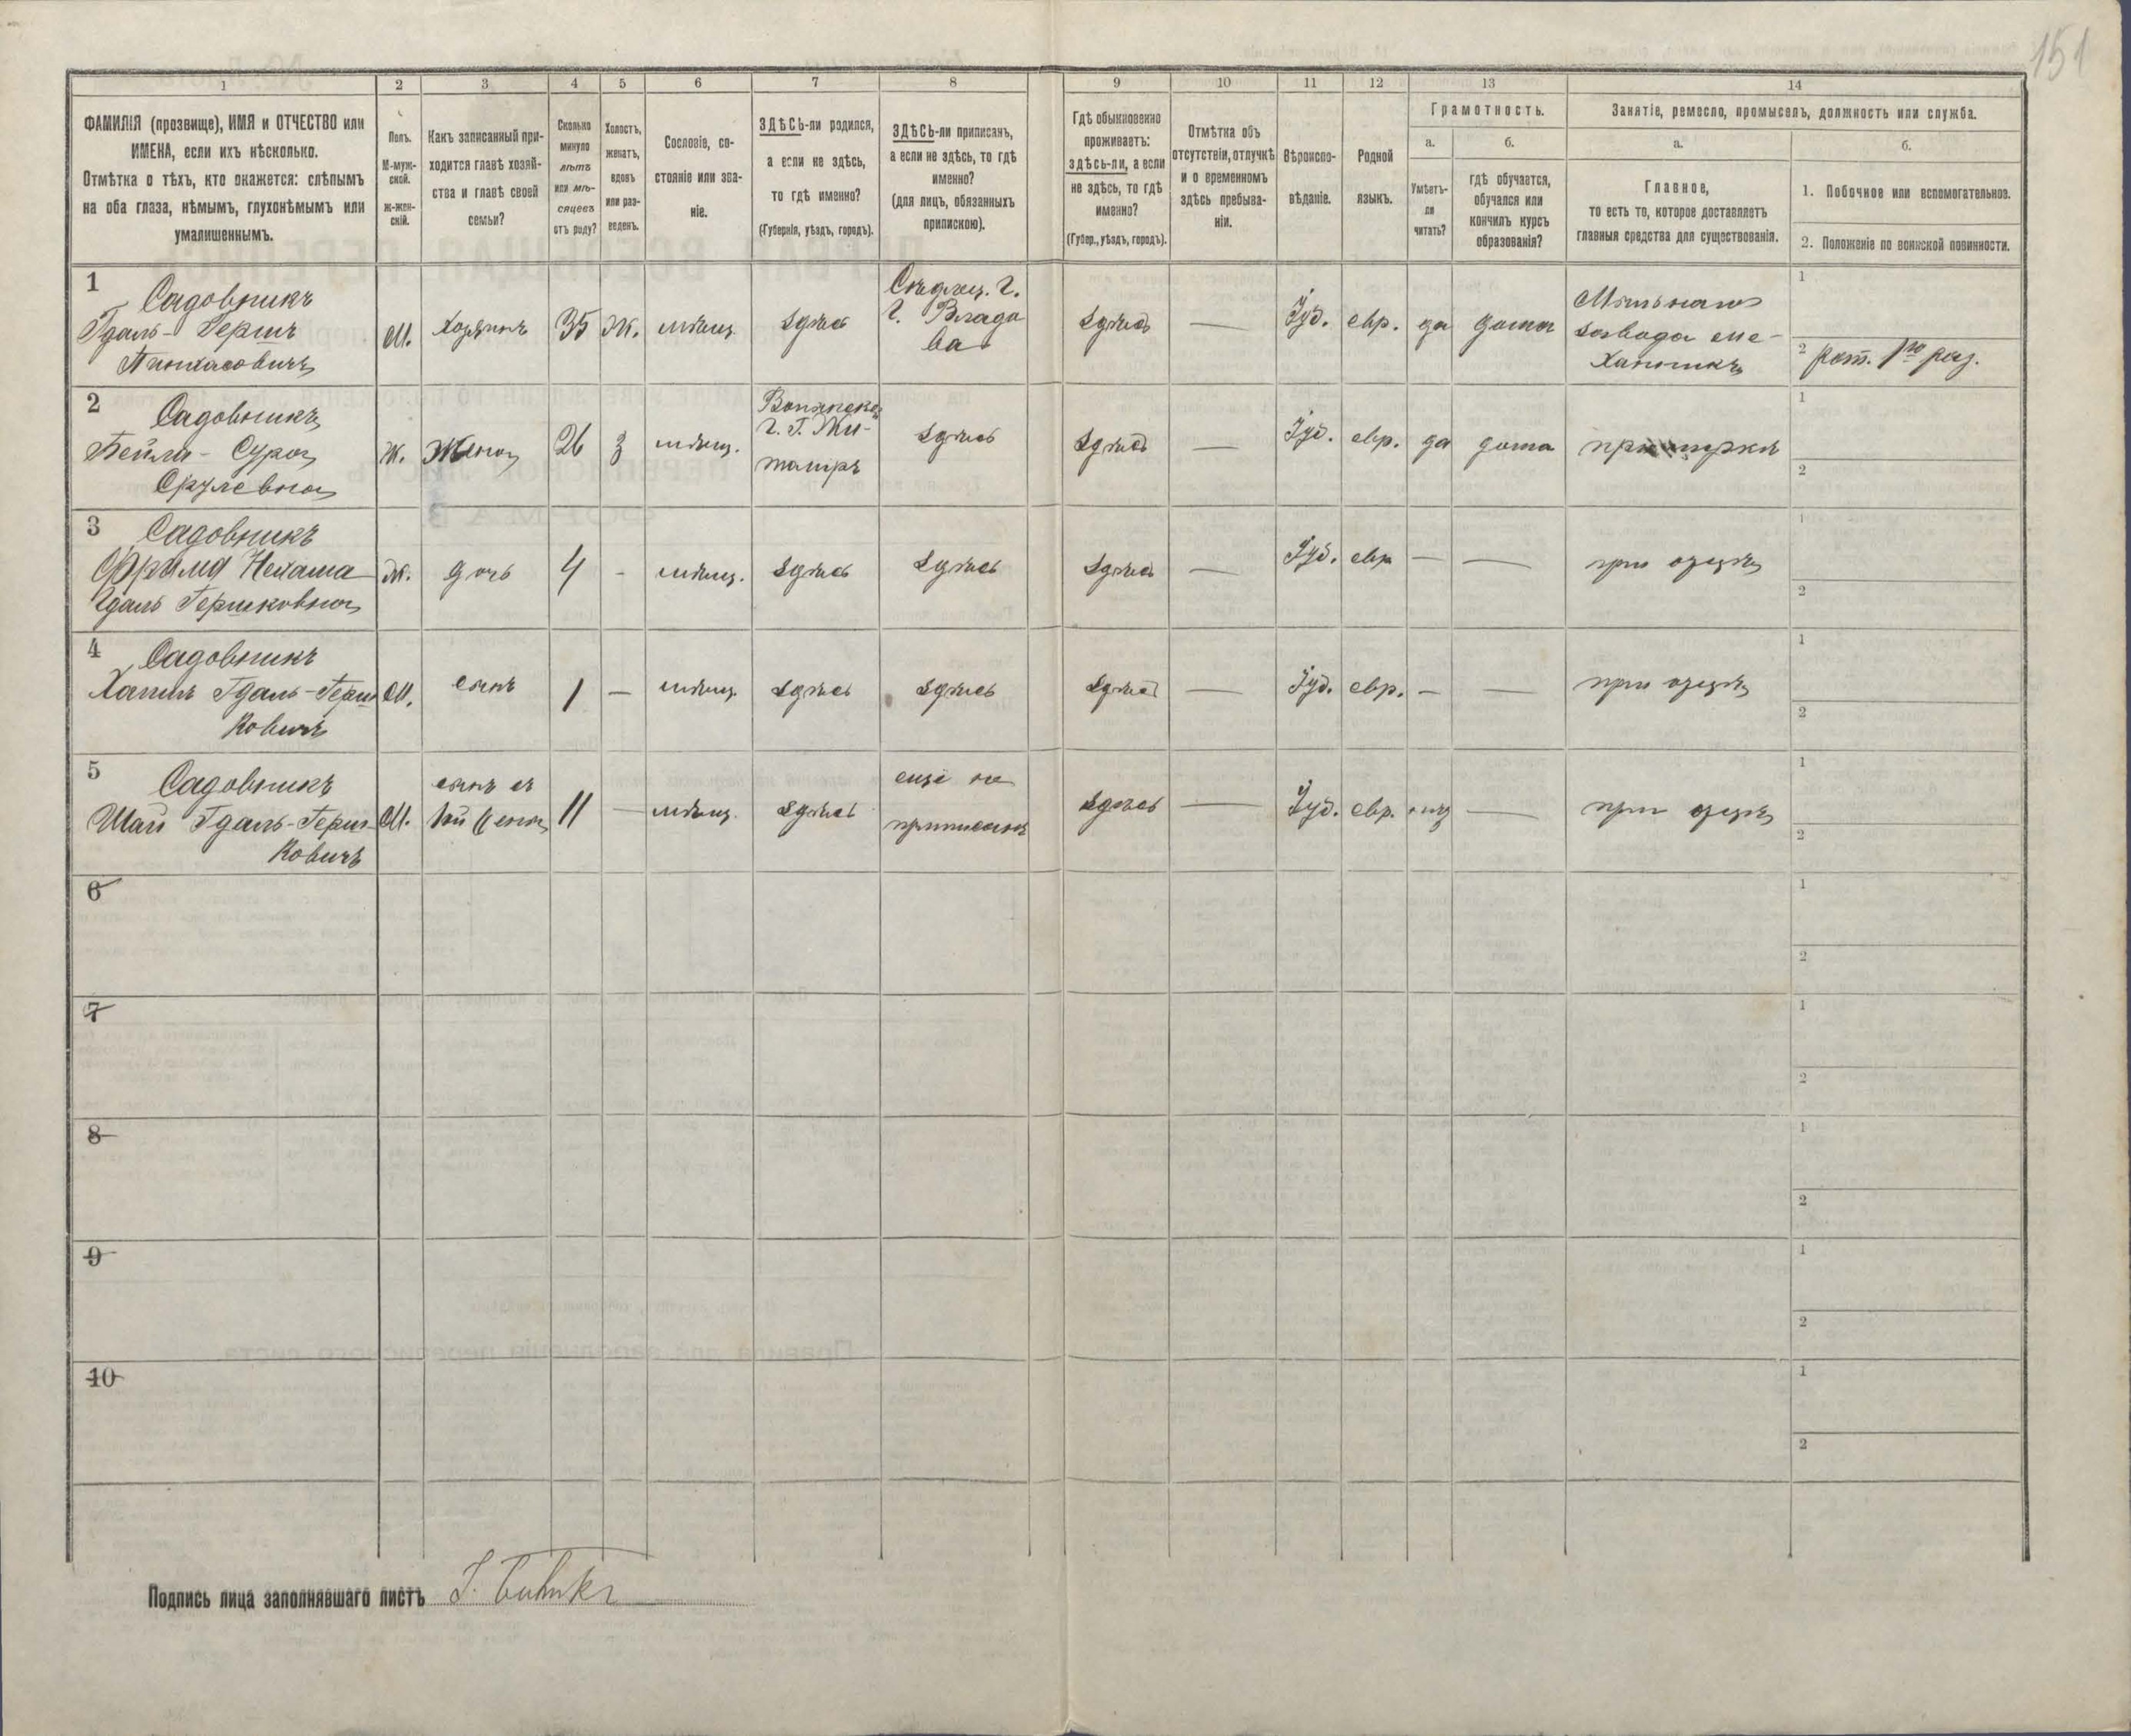 151
1
2
3
4
5
6
7
8
9
10
11
12
13
14
ФАМИЛІЯ (прозвище), ИМЯ и ОТЧЕСТВО или
ИМЕНА, если ихъ нѣсколько.
Отмѣтка о тѣхъ, кто окажется: слѣпымъ
на оба глаза, нѣмымъ, глухонѣмымъ или
умалишеннымъ.
Полъ.
М-муж-
ской.
ж-жен-
скій.
Какъ записанный при-
ходится главѣ хозяй-
ства и главѣ своей
семьи?
Сколько
минуло
лѣтъ
или мѣ-
сяцевъ
отъ роду?
Холостъ,
женатъ,
вдовъ
или раз-
веденъ.
Сословіе, со-
стояніе или зва-
ніе.
ЗДѢСЬ-ли родился,
а если не здѣсь,
то гдѣ именно?
(Губернія, уѣздъ, городъ).
ЗДѢСЬ-ли приписанъ,
а если не здѣсь, то гдѣ
именно?
(для лицъ, обязанныхъ
припискою).
Гдѣ обыкновенно
проживаетъ:
здѣсь-ли, а если
не здѣсь, то гдѣ
именно?
(Губер., уѣздъ, городъ).
Отмѣтка объ
отсутствіи, отлучкѣ
и о временномъ
здѣсь пребыва-
ніи.
Вѣроиспо-
вѣданіе.
Родной
языкъ.
Грамотность.
а.
Умѣетъ-
ли
читать?
б.
гдѣ обучается,
обучался или
кончилъ курсъ
образованія?
Занятіе, ремесло, промыселъ, должность или служба.
а.
Главное,
то есть то, которое доставляетъ
главныя средства для существованія.
б.
1. Побочное или вспомогательное.
2. Положеніе по воинской повинности.
1
Садовникъ
Гдаль-Герш
Пинхасовичъ
М.
Хозяинъ
35
Ж.
мѣщ
здѣсь
Сѣдлец. г.
г. Влада
ва
здѣсь
—
Іуд.
евр.
да
дома
завода ме-
ханикъ
1
2 рат. 1го раз.
2
Садовникъ
Бейла-Сура
Срулевна
Ж.
Жена
26
З
мѣщ.
Волынско
г. г. Жи-
томиръ
здѣсь
здѣсь
—
Іуд.
евр.
да
дома
при мужѣ
1
2
3
Садовникъ
Нехама
Гдаль Гершковна
Ж.
дочь
4
-
мѣщ.
здѣсь
здѣсь
здѣсь
—
Іуд.
евр
—
—
при отцѣ
1
2
4
Садовникъ
Хаимъ Гдаль-Герш
ковичъ
М.
сынъ
1
—
мѣщ.
здѣсь
здѣсь
здѣсь
—
Іуд.
евр.
—
—
при отцѣ
1
2
5
Садовникъ
Шая Гдаль-Герш
ковичъ
М.
сынъ съ
1ой жены
11
—
мѣщ.
здѣсь
еще не
приписанъ
здѣсь
—
Іуд.
евр.
—
при отцѣ
1
2
6
1
2
7
1
2
8
1
2
9
1
2
10
1
2
Подпись лица заполнявшаго листъ